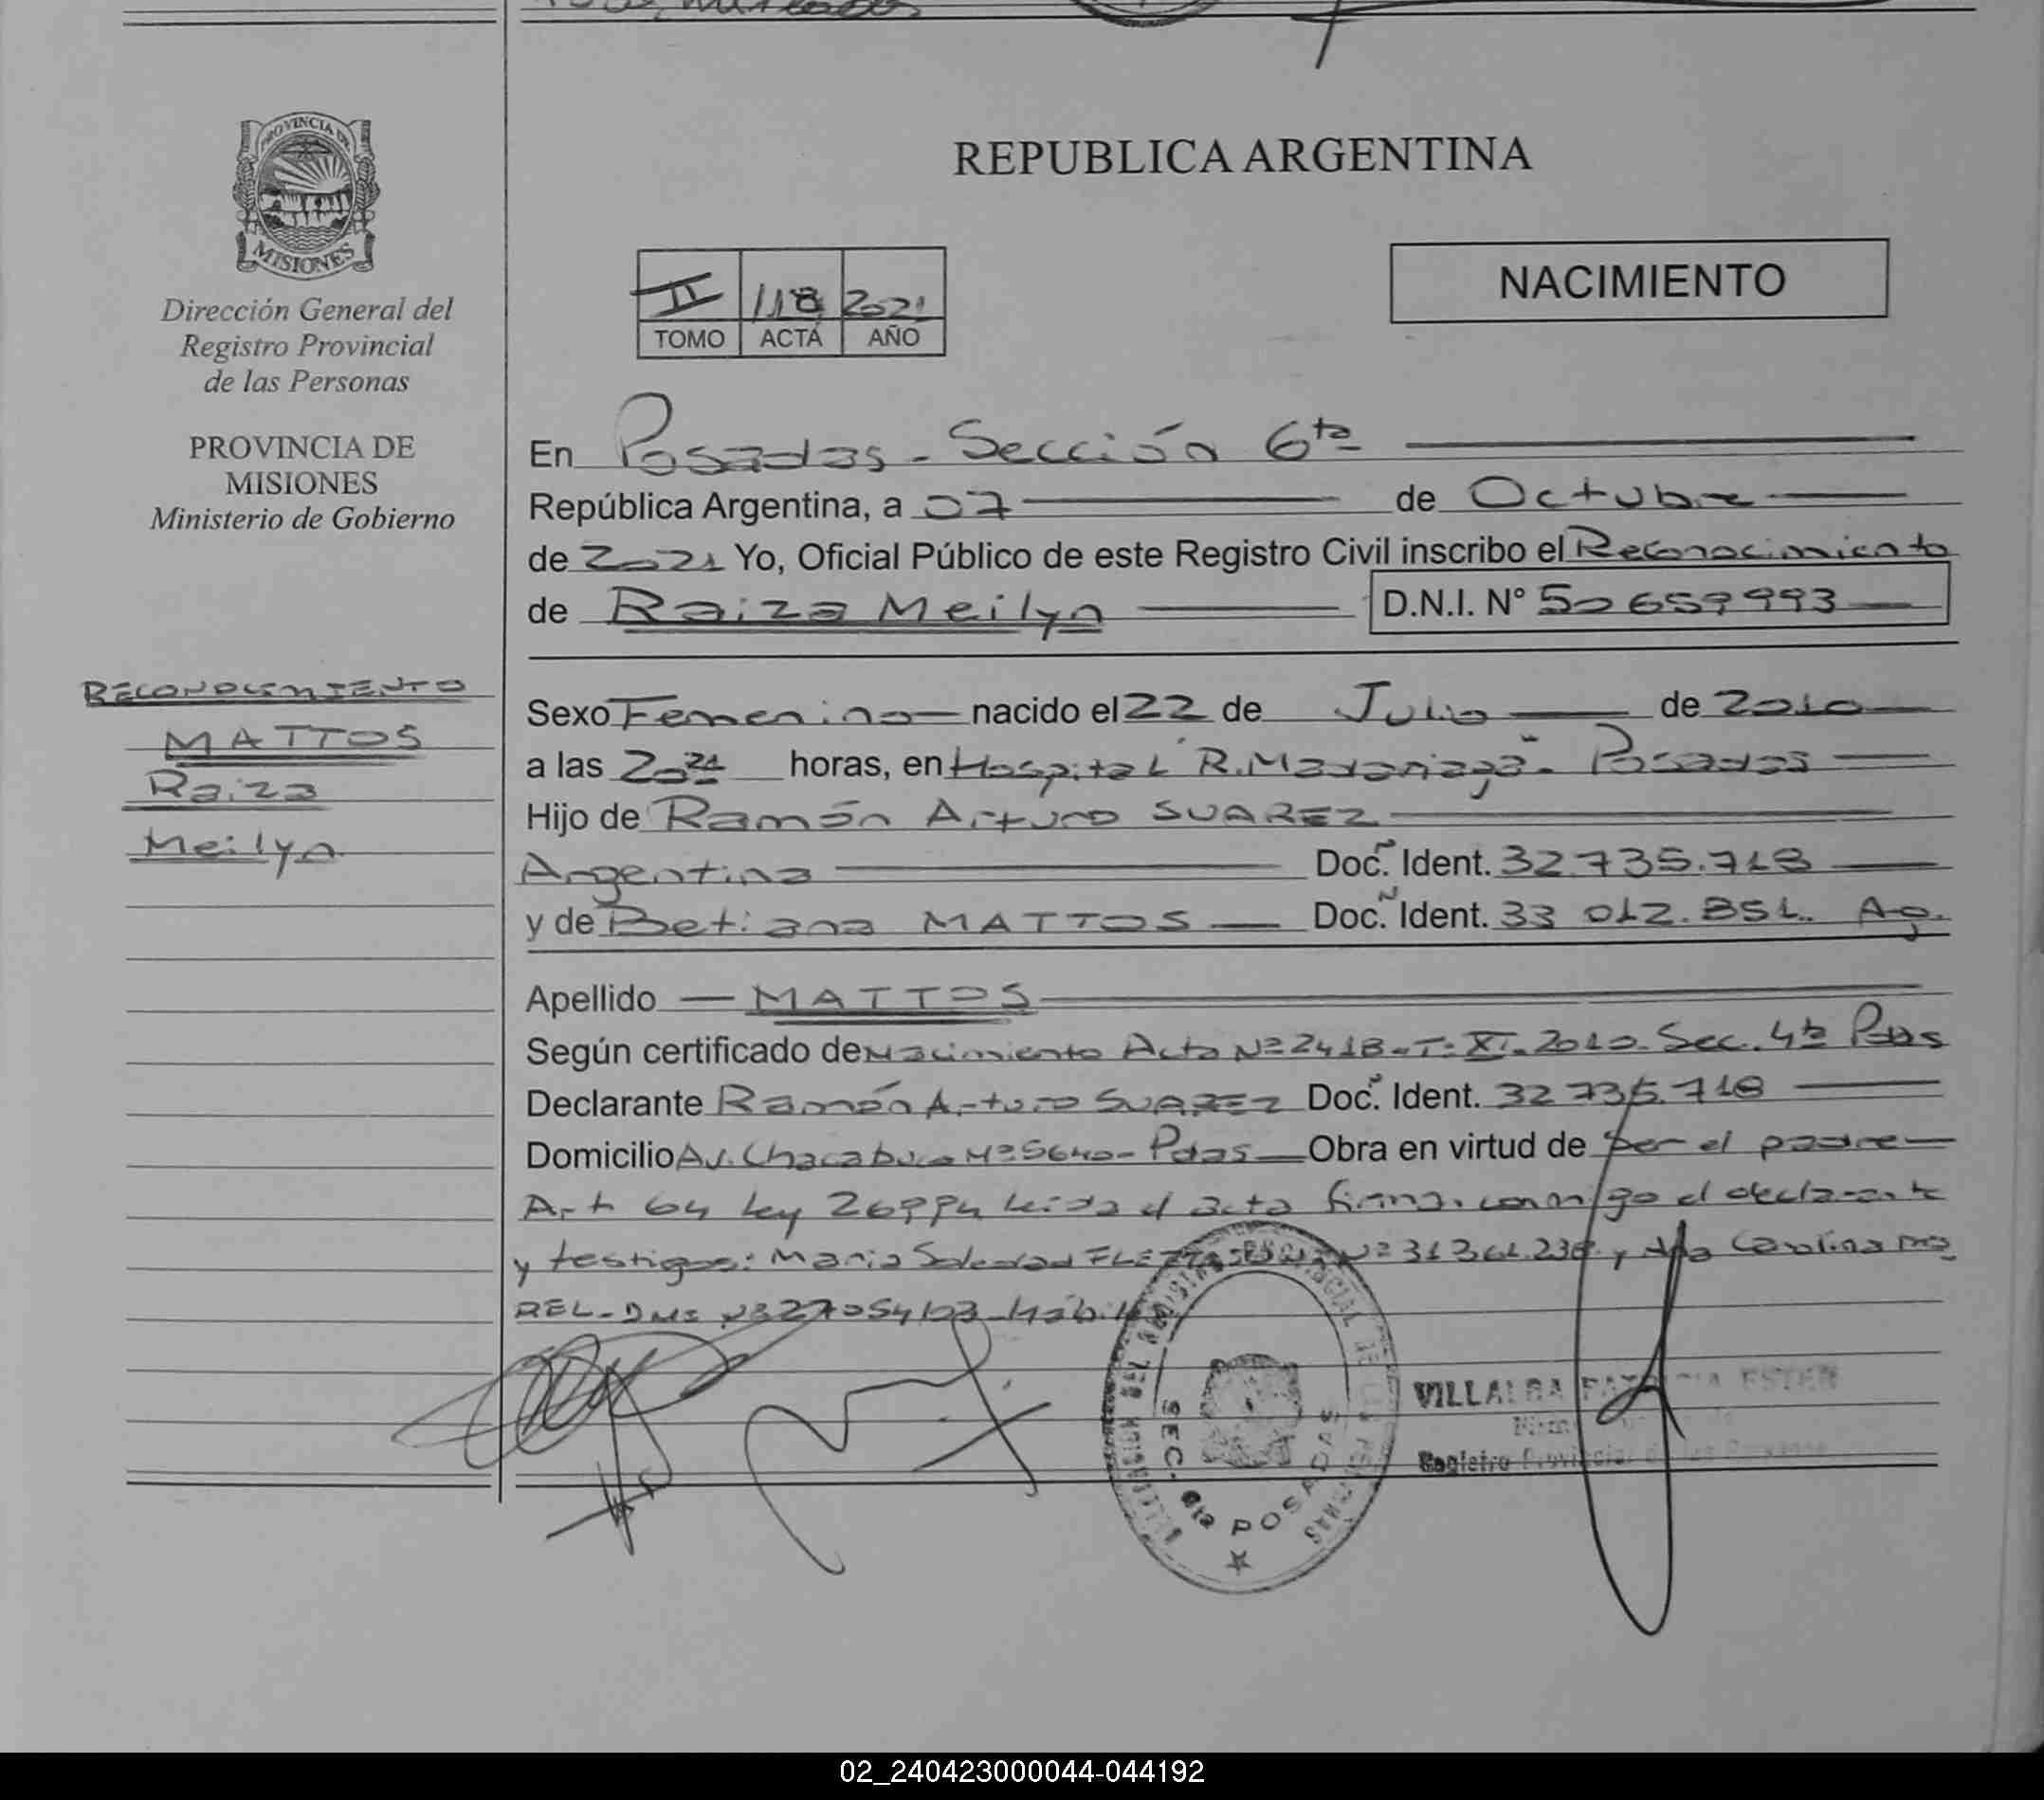 PROVINCIA DE
MISIONES
Dirección General del
Registro Provincial
de las Personas
PROVINCIA DE
MISIONES
Ministerio de Gobierno
RECONOCIMIENTO
MATTOS
Raiza
Meilyn
REPUBLICA ARGENTINA
II 118 2021
TOMO ACTA AÑO
NACIMIENTO
En Posadas - Sección 6ta
República Argentina, a 07 de Octubre
de 2021 Yo, Oficial Público de este Registro Civil inscribo el Reconocimiento
de Raiza Meilyn D.N.I. N° 50659993
Sexo Femenino nacido el 22 de Julio de 2010
a las 20:21 horas, en Hospital "R. Madariaga" - Posadas
Hijo de Ramón Arturo SUAREZ
Argentina Doc. Ident. 32.735.718
y de Betiana MATTOS Doc. Ident. 33 012.851. Ag.
Apellido MATTOS
Según certificado de Nacimiento Acta Nº 2418-T: XI-2010-Sec. 4ta Pdas
Declarante Ramón Arturo SUAREZ Doc. Ident. 32 735.718
Domicilio Av. Chacabuco Nº 5640 - Pdas Obra en virtud de ser el padre
Art 64 Ley 26994 leida el acta firma conmigo el declarante
y testigos: Maria Soledad Nº 31361.238 y Carolina
REL - DNI
SEC. 6ta POSADAS
VILLALBA
Registro Provincial de las Personas
02_240423000044-044192